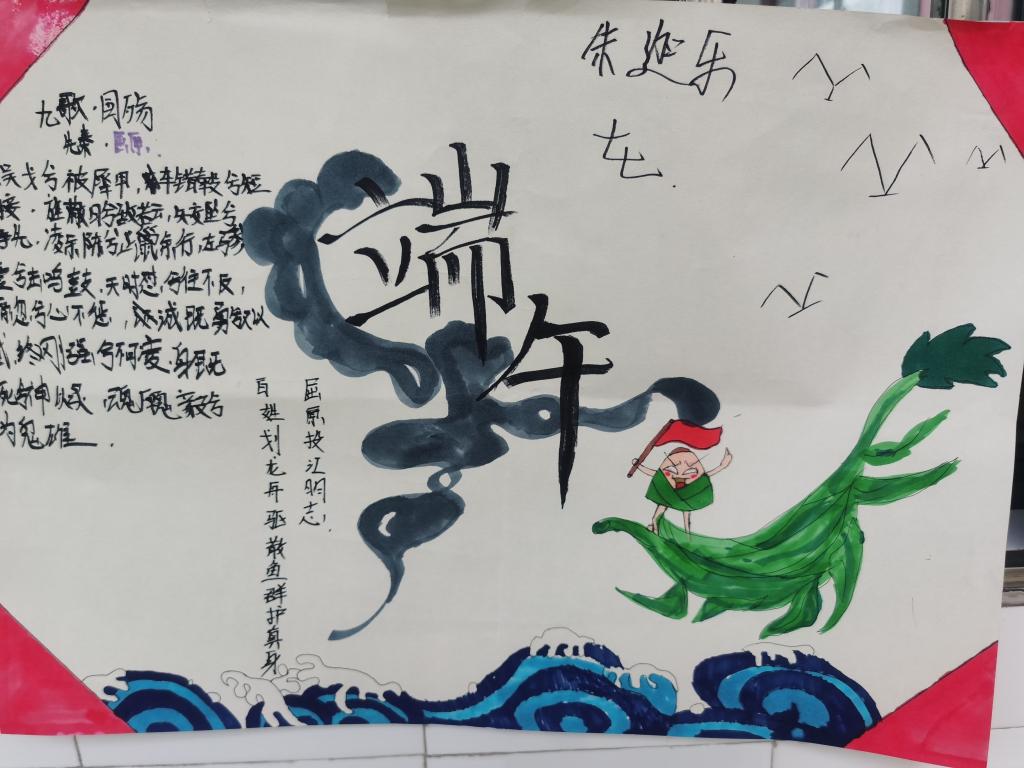 朱延乐
九歌·国殇
先秦·屈原
吴戈兮被犀甲，车错毂兮短
接。旌蔽日兮敌若云，矢交坠兮
争先。凌余阵兮躐余行，左骖
兮击鸣鼓，天时怼兮
兮心不惩，诚既勇兮又以
武，终刚强兮不可凌。身既
死兮神以灵，魂魄毅兮
为鬼雄。
端午
屈原投江明志，
百姓划龙舟驱散鱼群护真身